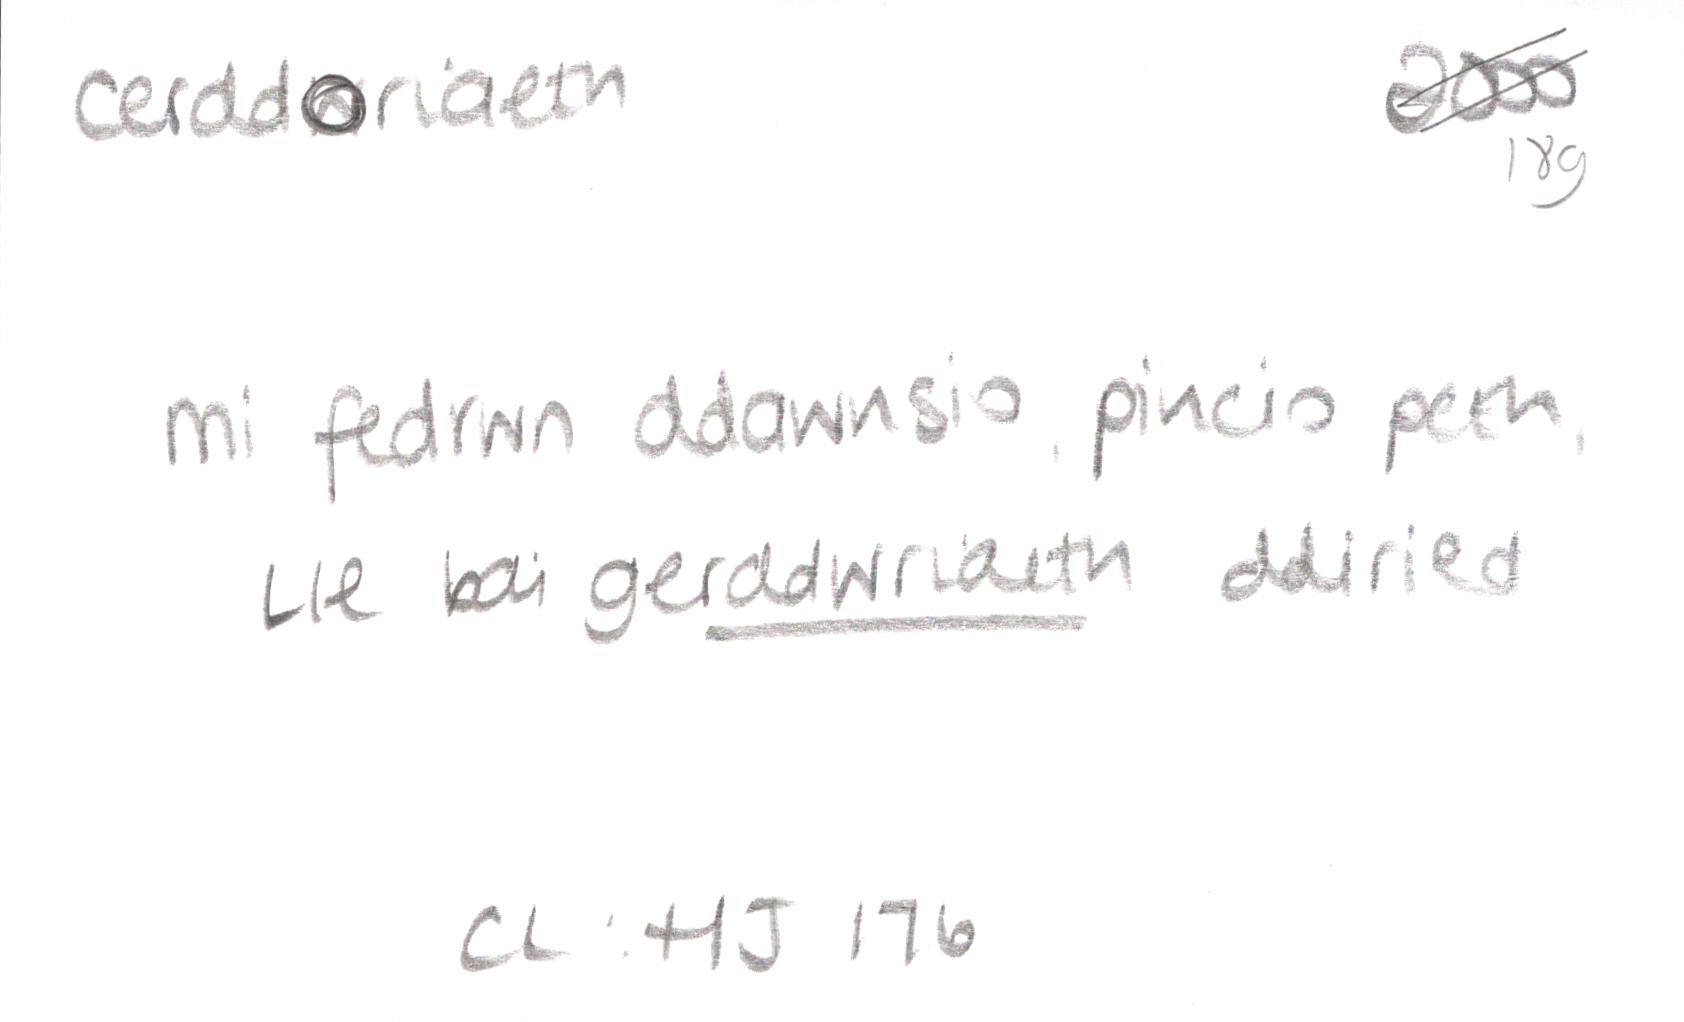 cerddoriaeth
2000
18g
Mi fedrwn ddawnsio, pincio peth,
Lle bai gerddwriaeth ddiried
CL : HJ 176